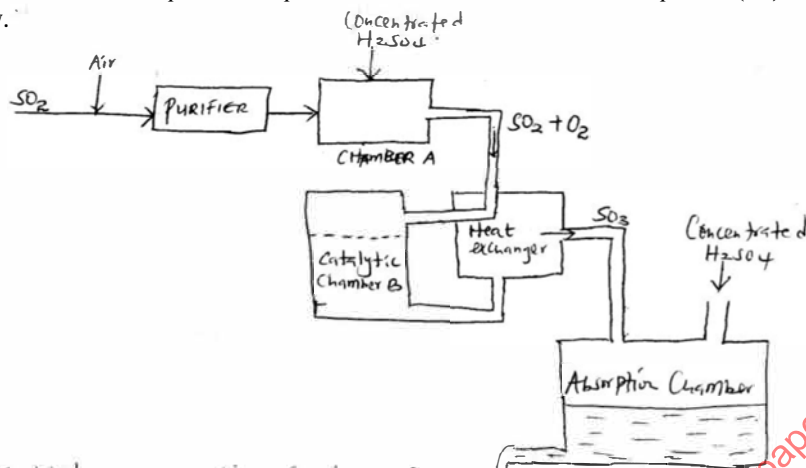 Concentrated
H2SO4
Air
SO2
PURIFIER
CHAMBER A
SO2 + O2
Heat
exchanger
Catalytic
Chamber B
SO3
Concentrated
H2SO4
Absorption Chamber